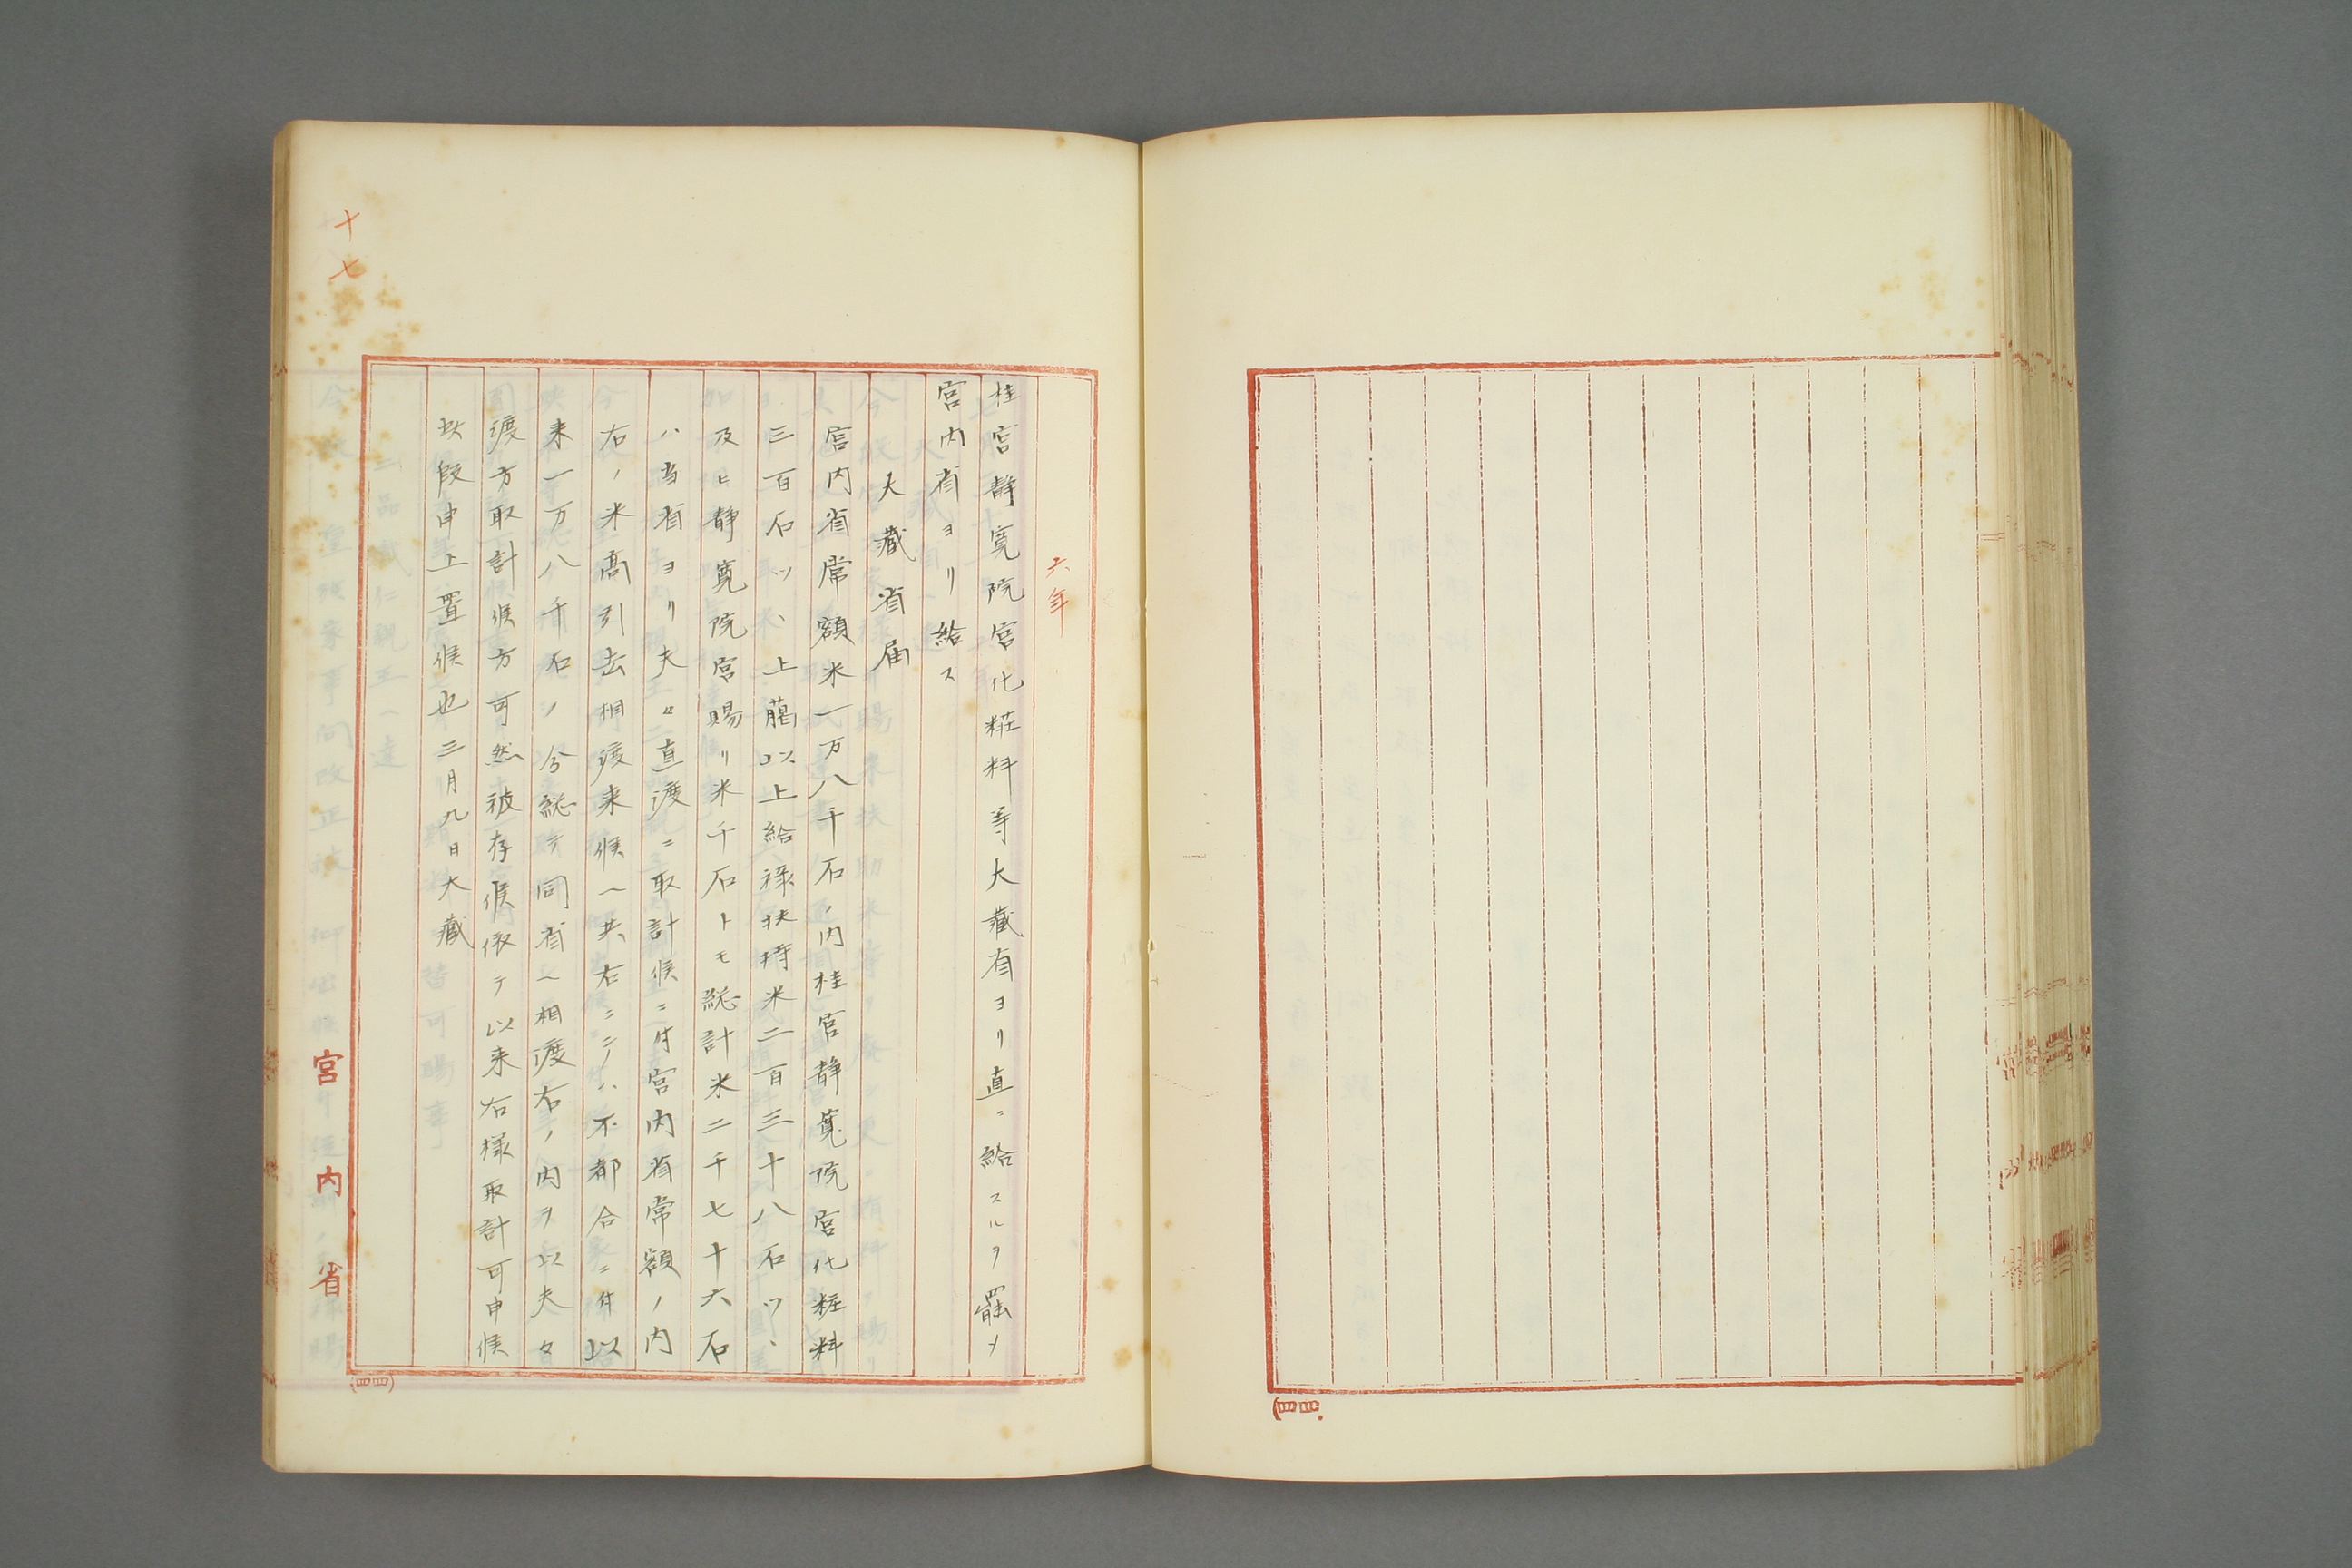 六年
桂宮静寛院宮化粧料等大藏省ヨリ直ニ給スルヲ罷メ
宮内省ヨリ給ス
大藏省届
宮内省常額米一万八千石ノ内桂宮静寛院宮化粧料
三百石ツヽ上﨟以上給禄扶持米二百三十八石ツヽ
及ヒ静寛院宮賜リ米千石トモ総計米二千七十六石
ハ当省ヨリ夫々直渡ニ取計候ニ付宮内省常額ノ内
右ノ米高引去相渡来候ヘ共右ニテハ不都合ニ付以
来一万八千石ノ分総テ同省ヘ相渡右ノ内ヲ以夫々
渡方取計候方可然被存候依テ以来右様取計可申候
此段申上置候也三月九日大藏
十七
宮内省
(四四)
(四四)